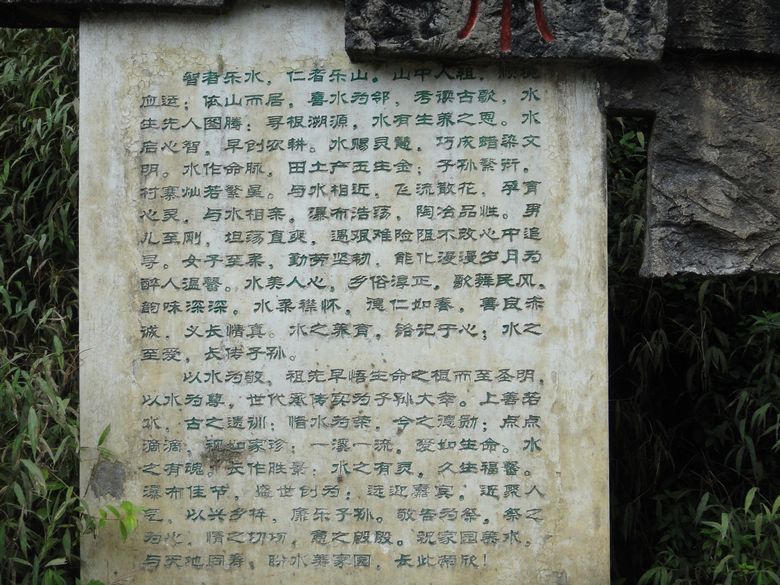 智者乐水，仁者乐山。山中人祖，
血运；依山而居，喜水为邻，秀溪古歌，水
生先人图腾；寻根溯源，水有生养之恩。水
启心智，早创农耕。水赐灵慧，巧成蜡染文
明。水作命脉，田土产五生金；子孙繁衍，
村寨灿若繁星。与水相近，飞流散花，孕育
心灵，与水相亲，瀑布浩荡，陶冶品性。男
儿至刚，坦荡直爽，遇艰难险阻不改心中追
寻。女子至柔，勤劳坚韧，能化漫漫岁月为
醉人温馨。水美人心，乡俗淳正。歌舞民风，
韵味深深。水柔襟怀，德仁如春，善良赤
诚，义长情真。水之养育，铭记于心；水之
至爱，长传子孙。
以水为敬，祖先早悟生命之根而至圣明，
以水为尊，世代承传实为子孙大幸。上善若
水，古之遗训；惜水为荣，今之德勋；点点
滴滴，视如家珍；一溪一流，爱如生命。水
之有魂，长作胜景；水之有灵，久生福馨。
瀑布佳节，盛世创为；远迎嘉宾，近聚人
气，以兴乡梓，康乐子孙。敬告为祭，祭之
为心，情之切切，意之殷殷。祝家园美水，
与天地同寿，盼水美家园，长此荣欣！